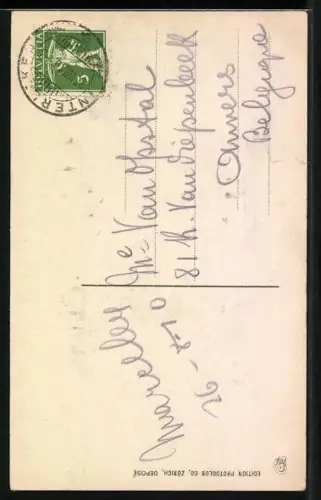 HELVETIA
5
INTERL
Mlle Van Opstal
81 R. Van Diepenbeek
Anvers
Belgique
Marcelle
26-8-10
EDITION PHOTOGLOB CO., ZÜRICH, DEPOSÉ